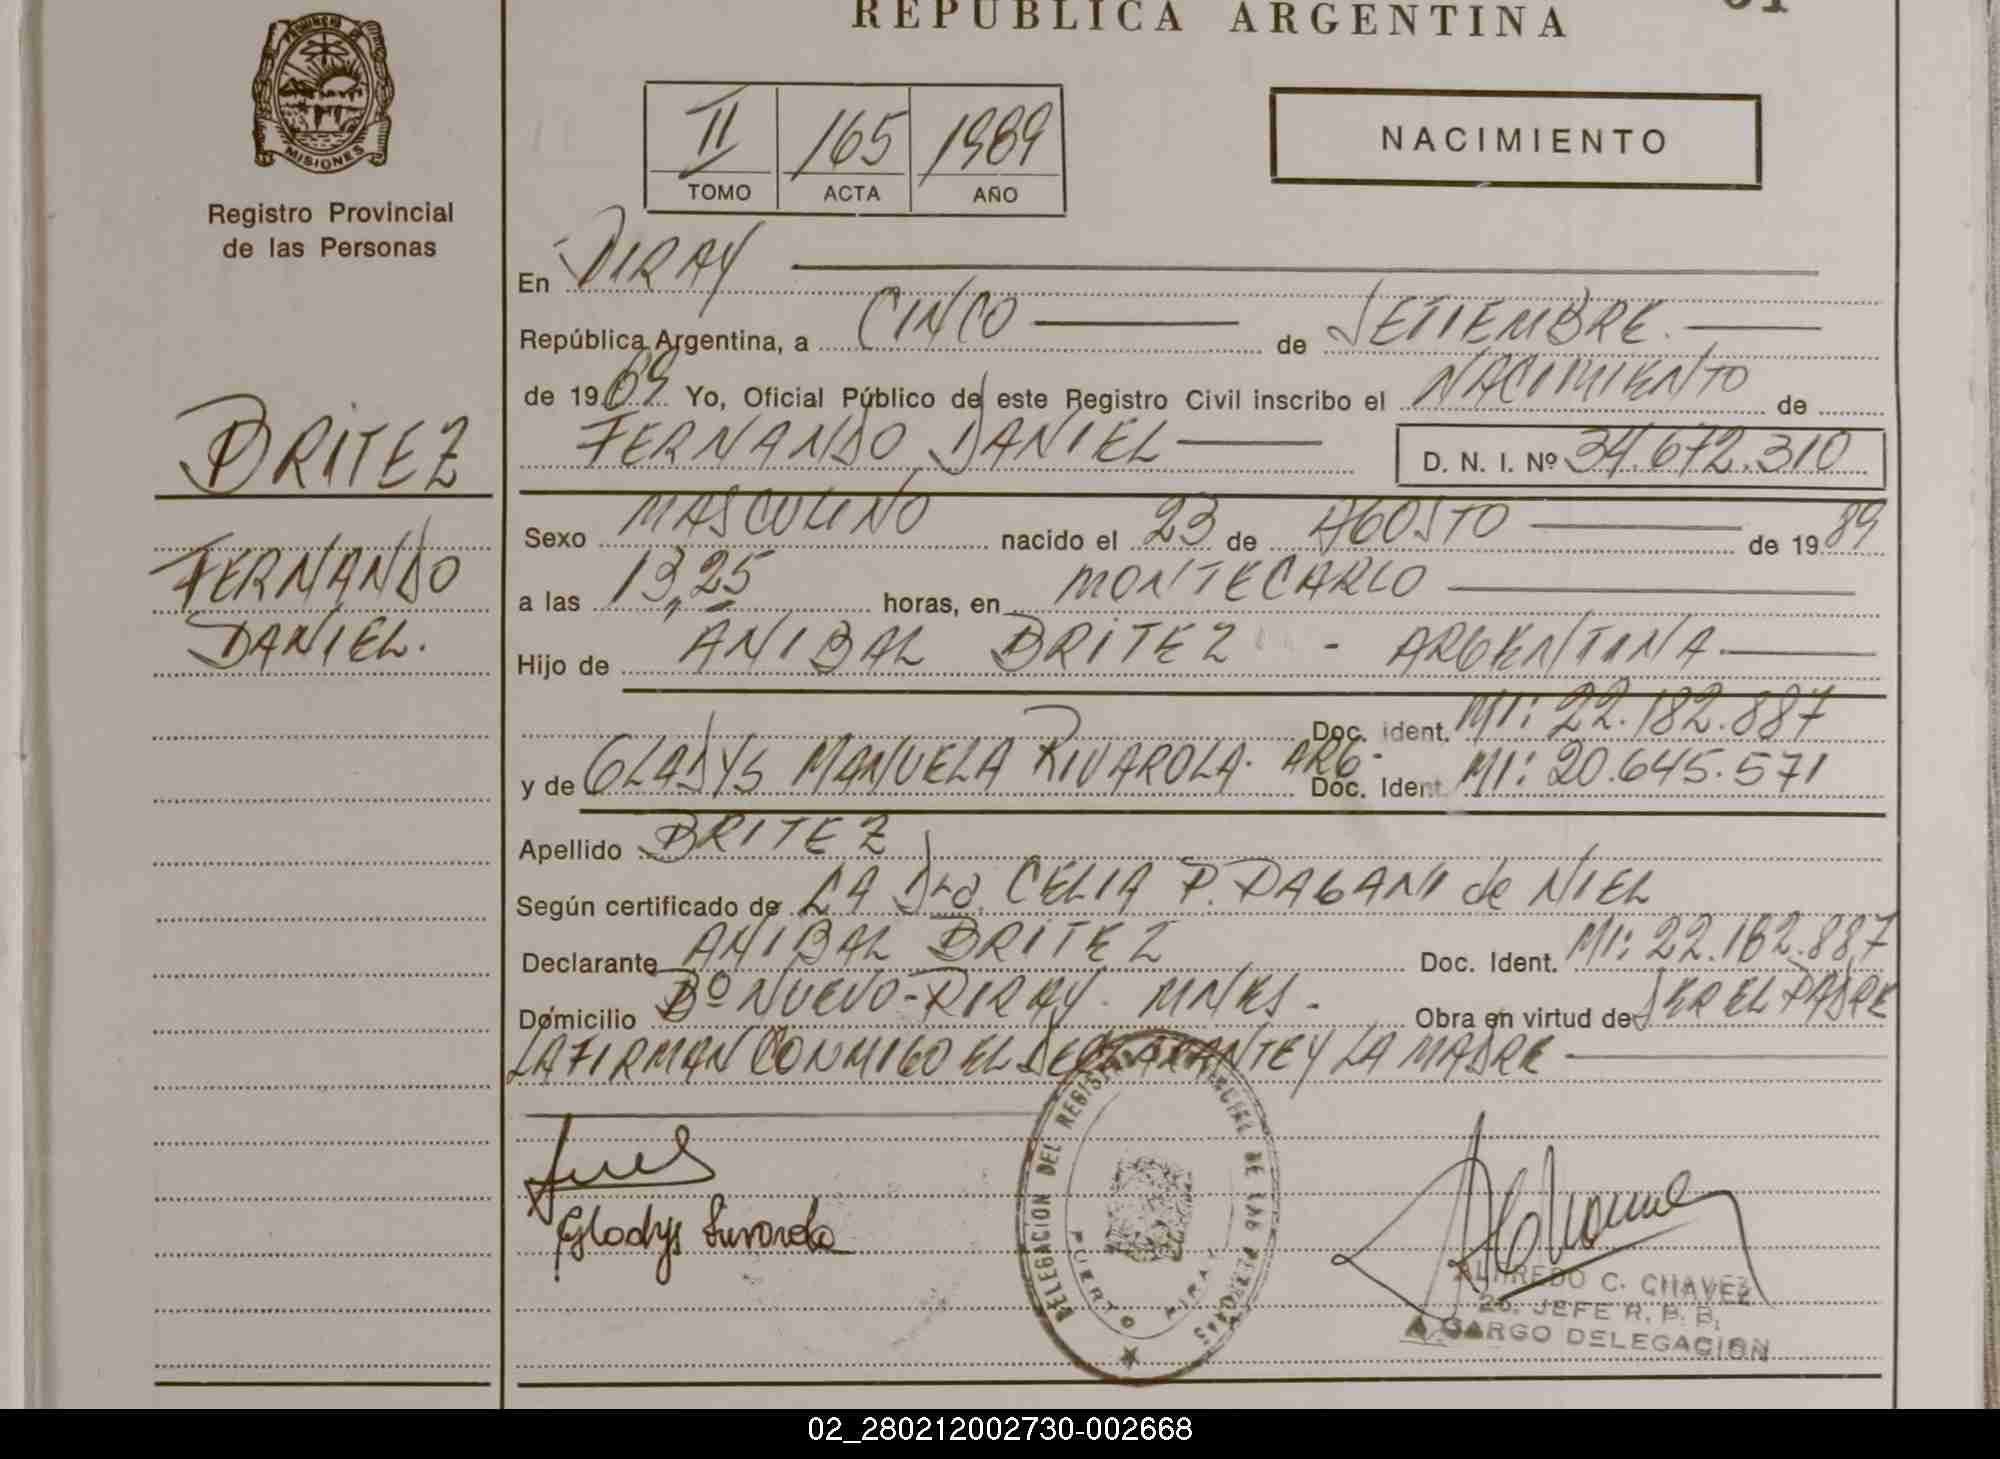 REPUBLICA ARGENTINA
PROVINCIA DE
MISIONES
Registro Provincial
de las Personas
II 165 1989
TOMO ACTA AÑO
NACIMIENTO
En PIRAY
República Argentina, a CINCO de SETIEMBRE.
de 1989 Yo, Oficial Público de este Registro Civil inscribo el NACIMIENTO de
FERNANDO DANIEL D. N. I. Nº 34.672.310
BRITEZ
FERNANDO
DANIEL.
Sexo MASCULINO nacido el 23 de AGOSTO de 1989
a las 13,25 horas, en MONTECARLO
Hijo de ANIBAL BRITEZ - ARGENTINA.
Doc. ident. MI: 22.182.887
y de GLADYS MANUELA RIVAROLA. ARG- Doc. Ident. MI: 20.645.571
Apellido BRITEZ
Según certificado de LA Dra. CELIA P. PAGANI de NIEL
Declarante ANIBAL BRITEZ Doc. Ident. MI: 22.182.887
Domicilio Bº NUEVO-PIRAY. MNES- Obra en virtud de SER EL PADRE
LA FIRMAN CONMIGO EL DECLARANTE Y LA MADRE
Gladys Rivarola
DELEGACION DEL REGISTRO PROVINCIAL DE LAS PERSONAS
PUERTO PIRAY
ALFREDO C. CHAVEZ
2o. JEFE R. P. P.
A CARGO DELEGACION
02_280212002730-002668